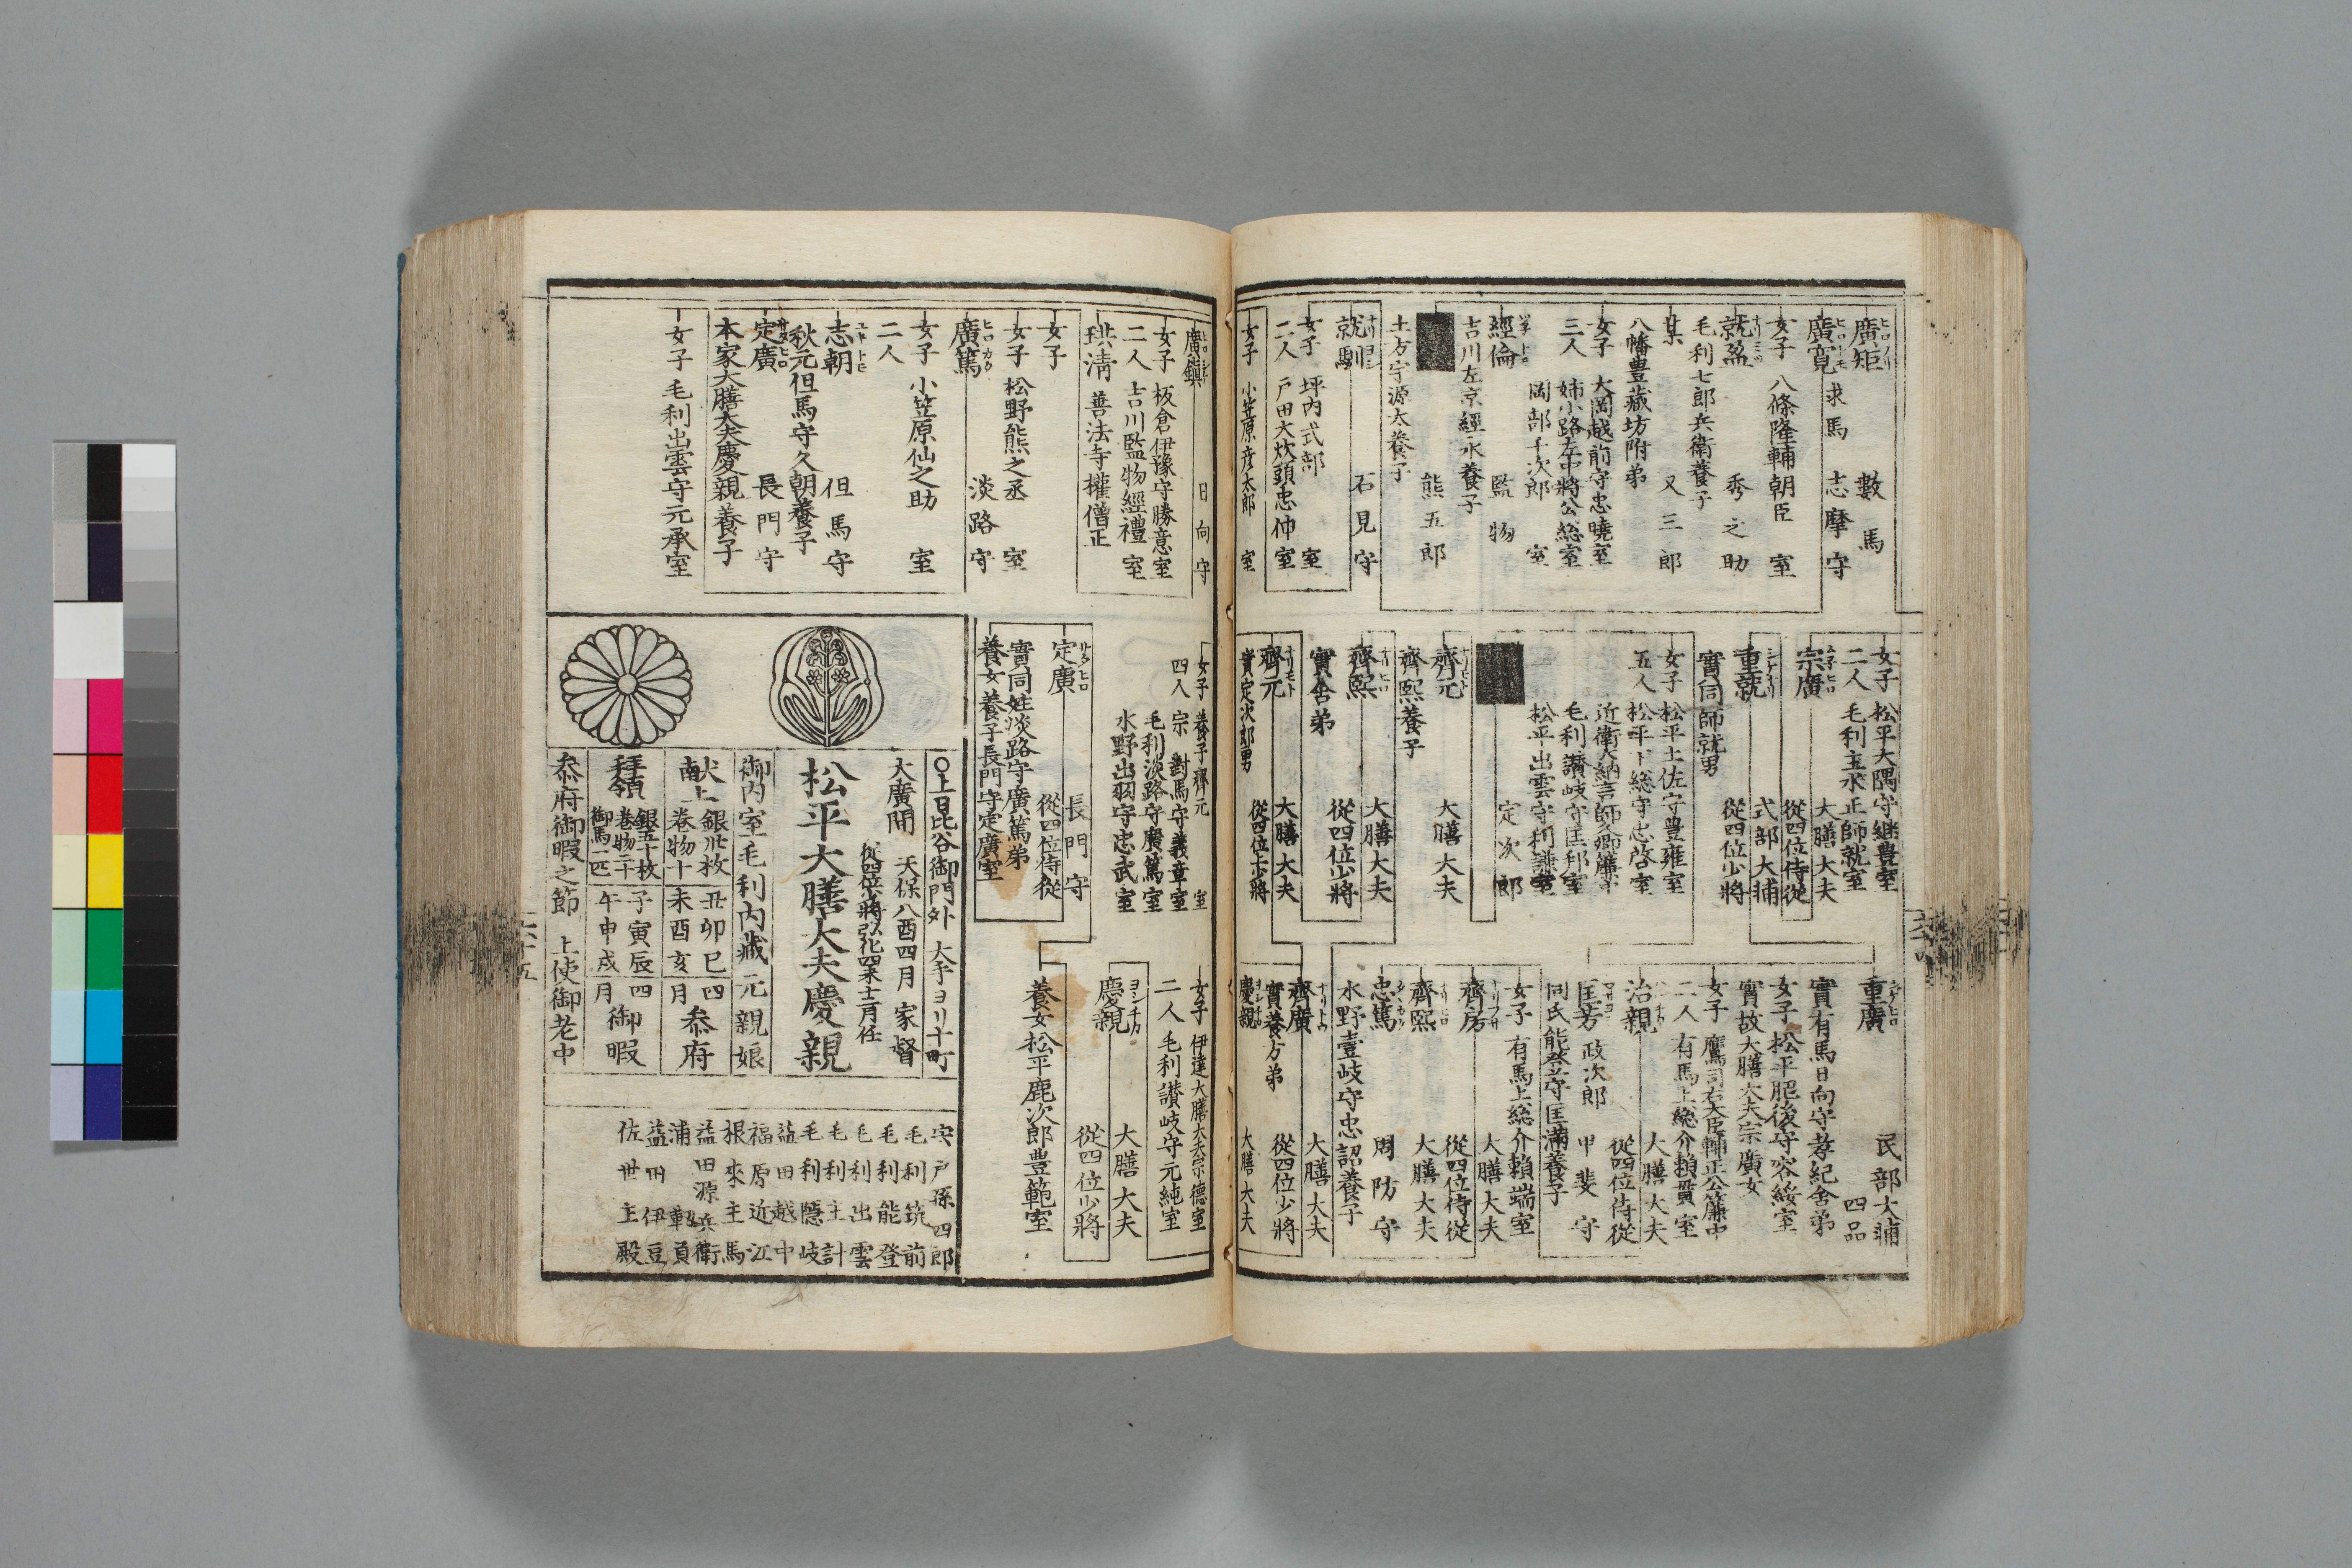 廣矩 數馬
廣寛 求馬 志摩守
女子 八條隆輔朝臣 室
就盈 秀之助
毛利七郎兵衛養子
某 又三郎
八幡豊藏坊附弟
女子 大岡越前守忠曉室
三人 姉小路左中將公総室
岡部千次郎 室
經倫 監物
吉川左京經永養子
熊五郎
土方宇源太養子
就馴 石見守
女子 坪内式部 室
二人 戸田大炊頭忠仲室
女子 小笠原彦太郎 室
女子 松平大隅守継豊室
二人 毛利主水正師就室
宗廣 大膳大夫
從四位侍從
重就 式部大輔
從四位少將
實同師就男
女子 松平土佐守豊雍室
五人 松平下総守忠啓室
近衛大納言師久卿簾中
毛利讃岐守匡邦室
松平出雲守利謙室
定次郎
齊元 大膳大夫
齊熙養子
齊熙 大膳大夫
從四位少將
實舎弟
齊元 大膳大夫
從四位少將
實定次郎男
重廣 民部大輔
四品
實有馬日向守孝紀舎弟
女子 松平肥後守容綏室
實故大膳大夫宗廣女
女子 鷹司右大臣輔正公簾中
二人 有馬上総介頼貴室
治親 大膳大夫
從四位侍從
匡芳 政次郎 甲斐守
同氏能登守匡満養子
女子 有馬上総介頼端室
齊房 大膳大夫
從四位侍從
齊熙 大膳大夫
忠篤 周防守
水野壹岐守忠詔養子
齊廣 大膳大夫
從四位少將
實養方弟
慶親 大膳大夫
廣鎮 日向守
女子 板倉伊豫守勝意室
二人 吉川監物經禮 室
珙淸 善法寺權僧正
女子
女子 松野熊之丞 室
廣篤 淡路守
女子 小笠原仙之助 室
二人
志朝 但馬守
秋元但馬守久朝養子
定廣 長門守
本家大膳大夫慶親養子
女子 毛利出雲守元承室
女子 養子齊元 室
四人 宗對馬守義章室
毛利淡路守廣篤室
水野出羽守忠武室
定廣 長門守
從四位侍從
實同姓淡路守廣篤弟
養女 養子長門守定廣室
女子 伊達大膳大夫宗德室
二人 毛利讃岐守元純室
慶親 大膳大夫
從四位少將
養女松平鹿次郎豊範室
〇上日比谷御門外 大手ヨリ十町
大廣間 天保八酉四月 家督
從四位少將弘化四未十二月任
松平大膳大夫慶親
御内室毛利内藏元親娘
献上 銀卅枚 巻物十
丑卯巳
未酉亥
四月 叅府
拜領 銀五十枚 巻物二十 御馬一匹
子寅辰
午申戌
四月 御暇
叅府御暇之節 上使御老中
宍戸孫四郎
毛利筑前
毛利能登
毛利出雲
毛利主計
毛利隱岐
益田越中
福原近江
根來主馬
益田源兵衛
浦靱負
益田伊豆
佐世主殿
六十五